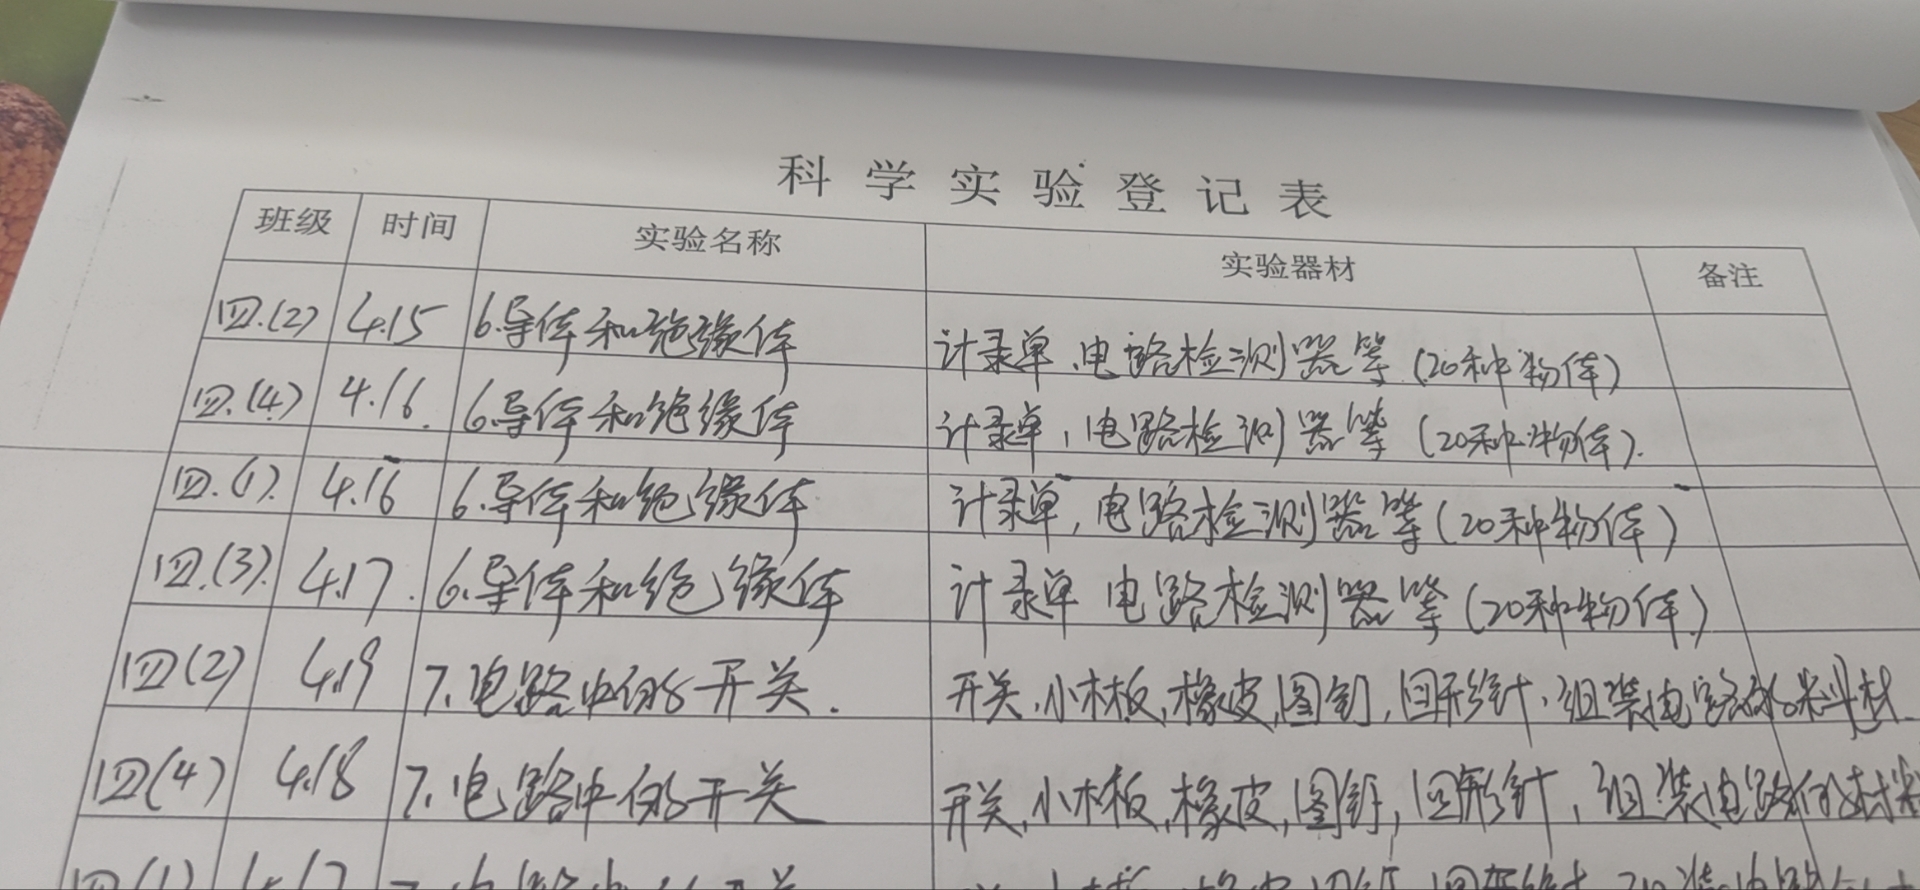 科学实验登记表
班级 时间 实验名称 实验器材 备注
四.(2) 4.15 6.导体和绝缘体 计录单、电路检测器等(20种物体)
四.(4) 4.16. 6.导体和绝缘体 计录单,电路检测器等(20种物体).
四.(1). 4.16 6.导体和绝缘体 计录单,电路检测器等(20种物体)
四.(3). 4.17. 6.导体和绝缘体 计录单 电路检测器等(20种物体)
四(2) 4.19 7.电路中的开关. 开关,小木板,橡皮,图钉,回形针,组装电路的料材
四(4) 4.18 7.电路中的开关 开关,小木板,橡皮,图钉,回形针,组装电路的材料
四(1) 电路中的开关